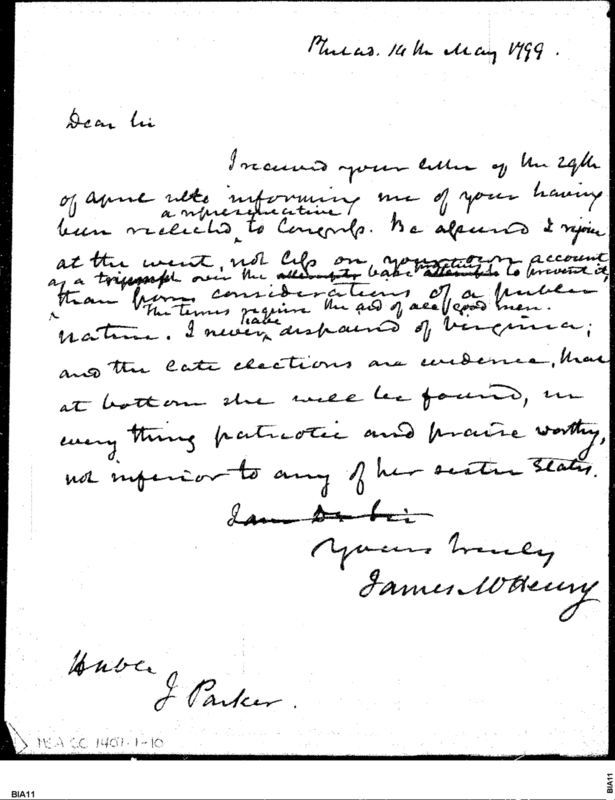 Philad. 14th May 1799.
Dear Sir
I received your letter of the 29th
of April ulto informing me of your having
a representative
been reelected to Congress. Be assured I rejoice
at the event, not less on your own account
as a triumph over the attempts base to prevent it,
than from considerations of a public
The times require the aid of all good men.
nature. I never have despaired of Virginia;
and the late elections are evidence, that
at bottom she will be found, in
every thing patriotic and praise worthy,
not inferior to any of her sister States.
I am Dr Sir
Yours truly
James McHenry
Honble
J Parker.
BIA11
BIA11